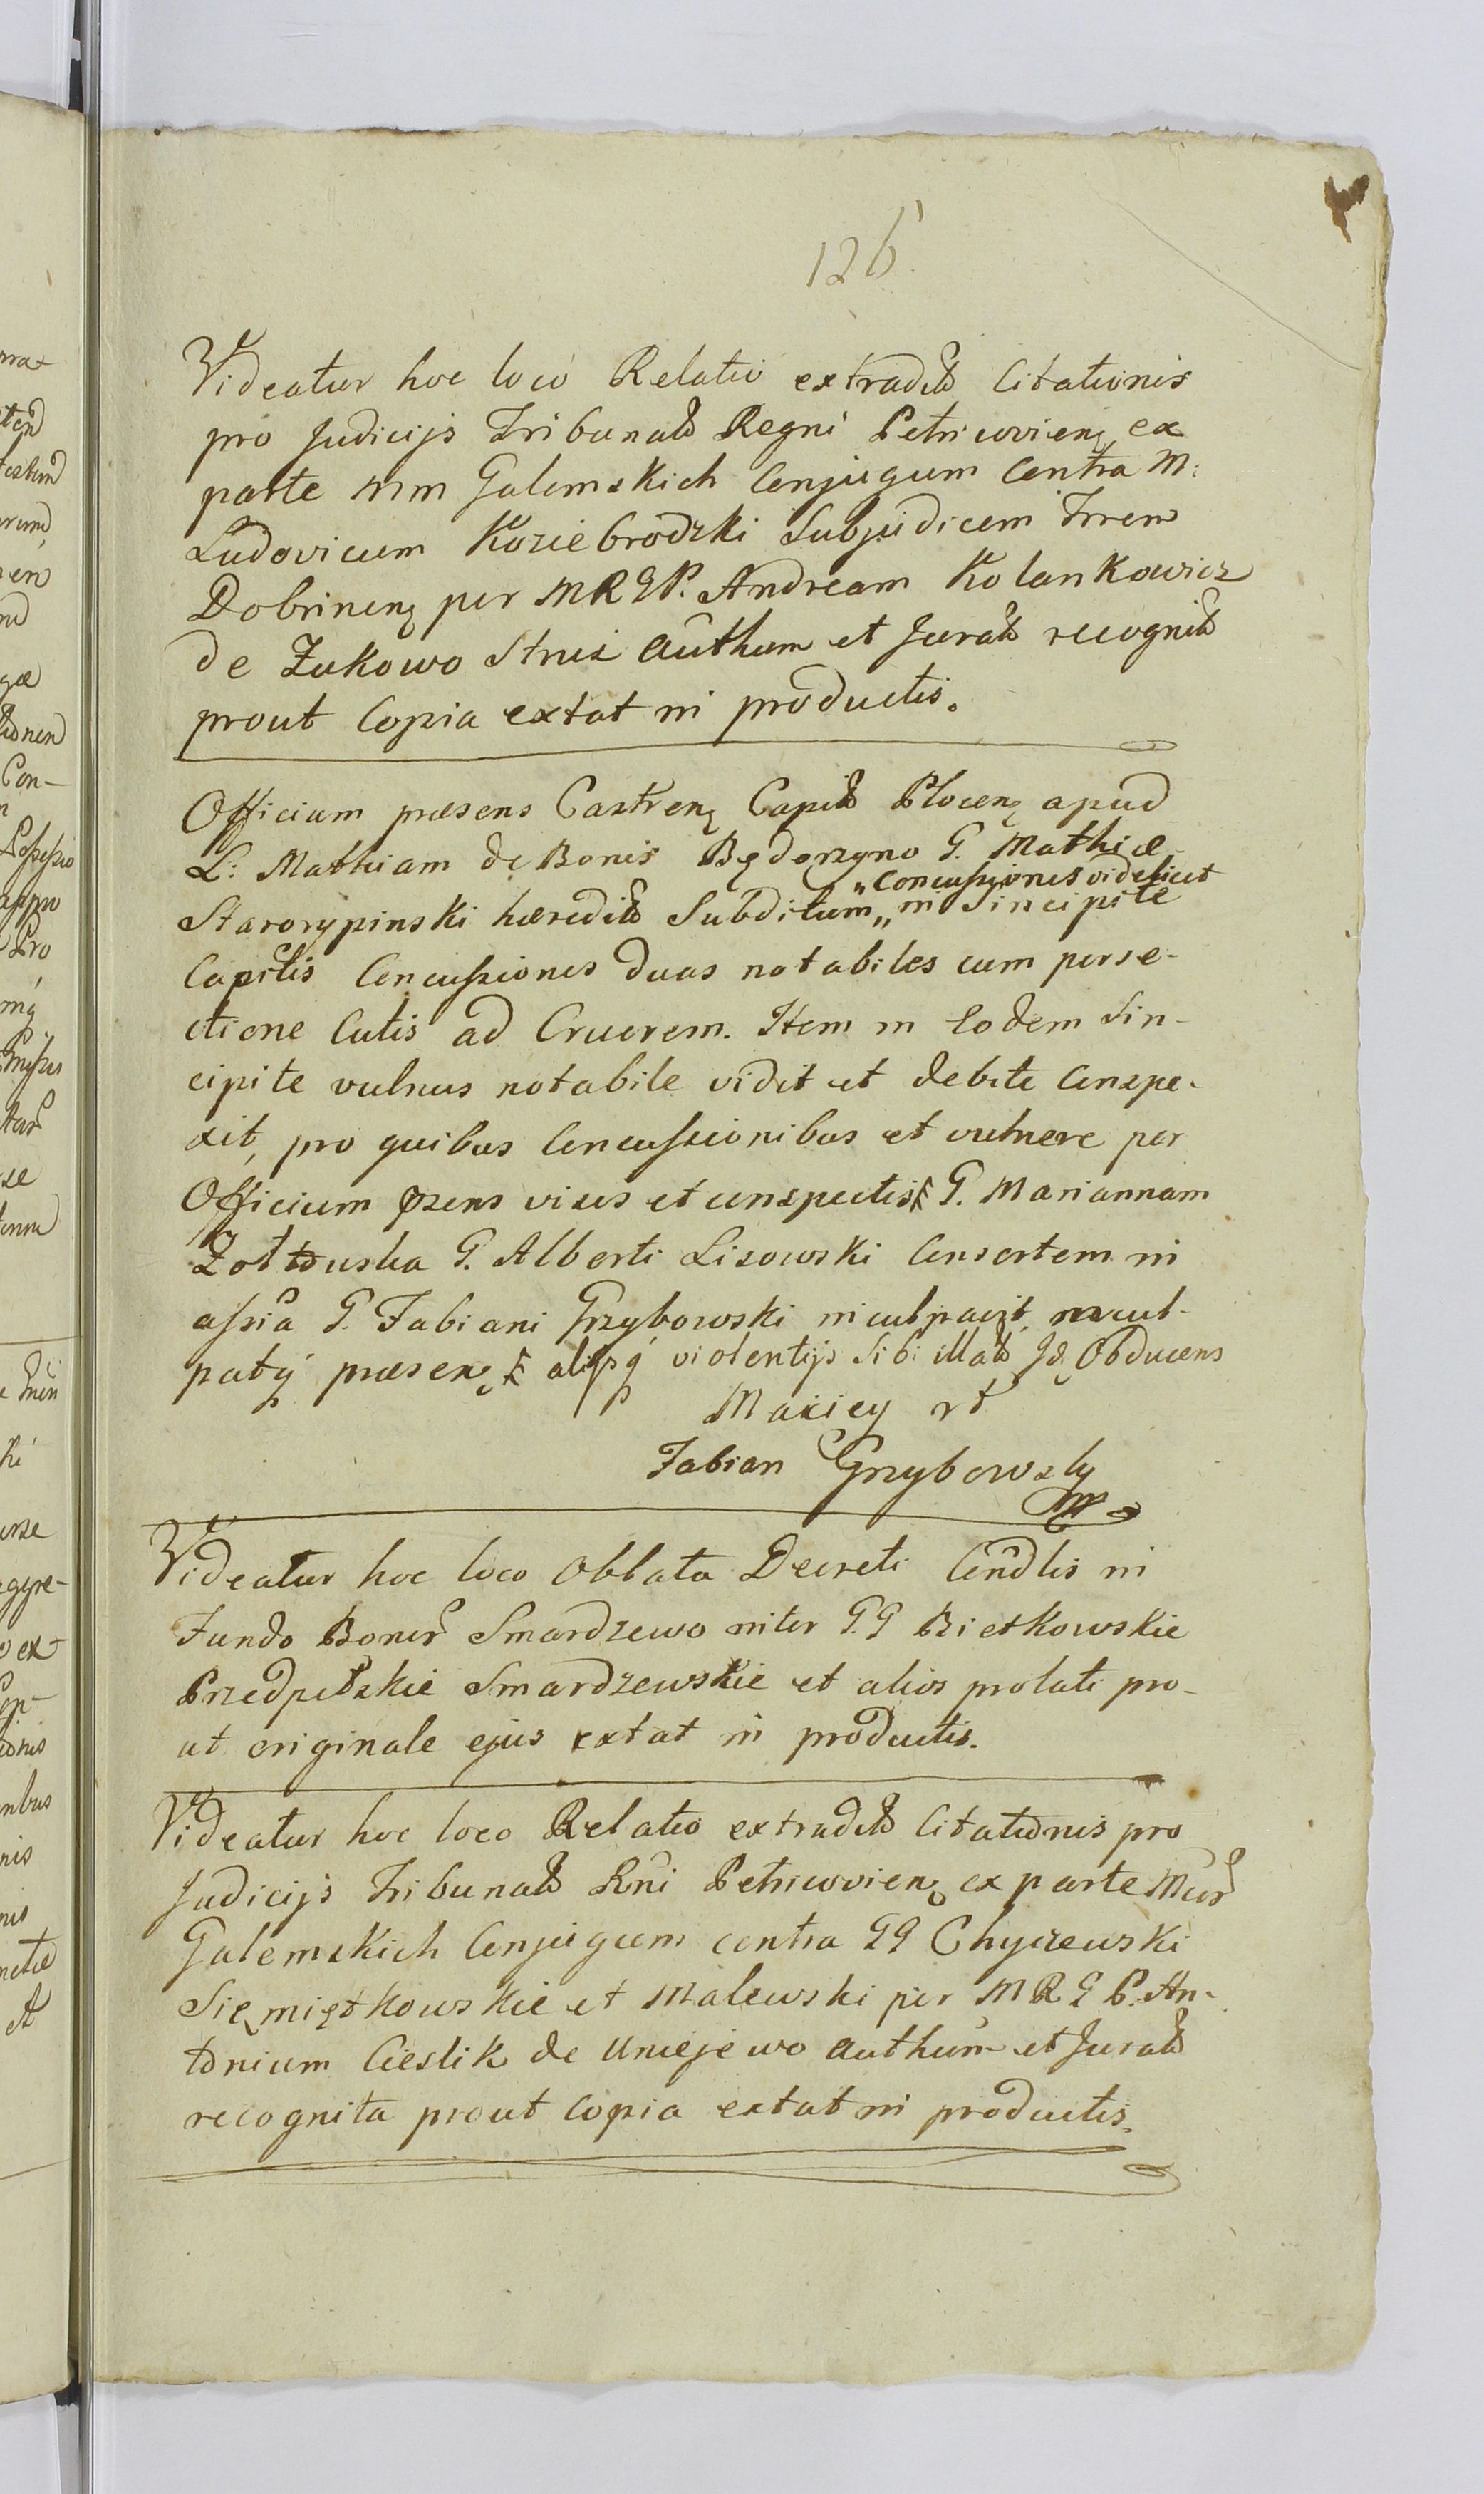 126
Videatur hoc loco Relatio extradit Citationis
pro Judicijs Tribunal Regni Petricovien ex
parte MM Galemskich Conjugum Contra M:
Ludovicum Koziebrodzki Subjudicem Trren
Dobrinen per MRGP. Andream Kolankowicz
de Zukowo Strus Authum et Jurat recognit
prout Copia extat in productis.
Officium præsens Castren Capit Plocen apud
L: Mathiam de Bonis Będorzyno G. Mathiæ
„Concussiones videlicet
Starorypinski hæredit Subditum„ in Sincipite
Capitis Concussiones duas notabiles cum perse-
ctione Cutis ad Cruorem. Item in Eodem Sin-
cipite vulnus notabile vidit et debite Conspe-
xit, pro quibus Concussionibus et vulnere per
Officium pzens visis et conspectis G. Mariannam
Zołtowska G. Alberti Lisowski Consortem in
assia G. Fabiani Grzybowski inculpavit, incul-
patq præsen alijsq violentijs Sibi illat Id Obducens
Maciey rt
Fabian Grzybowsky
Videatur hoc loco Oblata Decreti Condlis in
Fundo Bonor Smardzewo inter GG Bietkowskie
Przedpełskie Smardzewskie et alios prolati pro-
ut originale ejus extat in productis.
Videatur hoc loco Relatio extradit Citationis pro
Judicijs Tribunal Rni Petricovien ex parte Mcor
Galemskich Conjugum contra GG Chyczewski
Siemiętkowskie et Malewski per MRGP. An-
tonium Cieslik de Uniejewo Authum et Jurat
recognita prout Copia extat in productis.